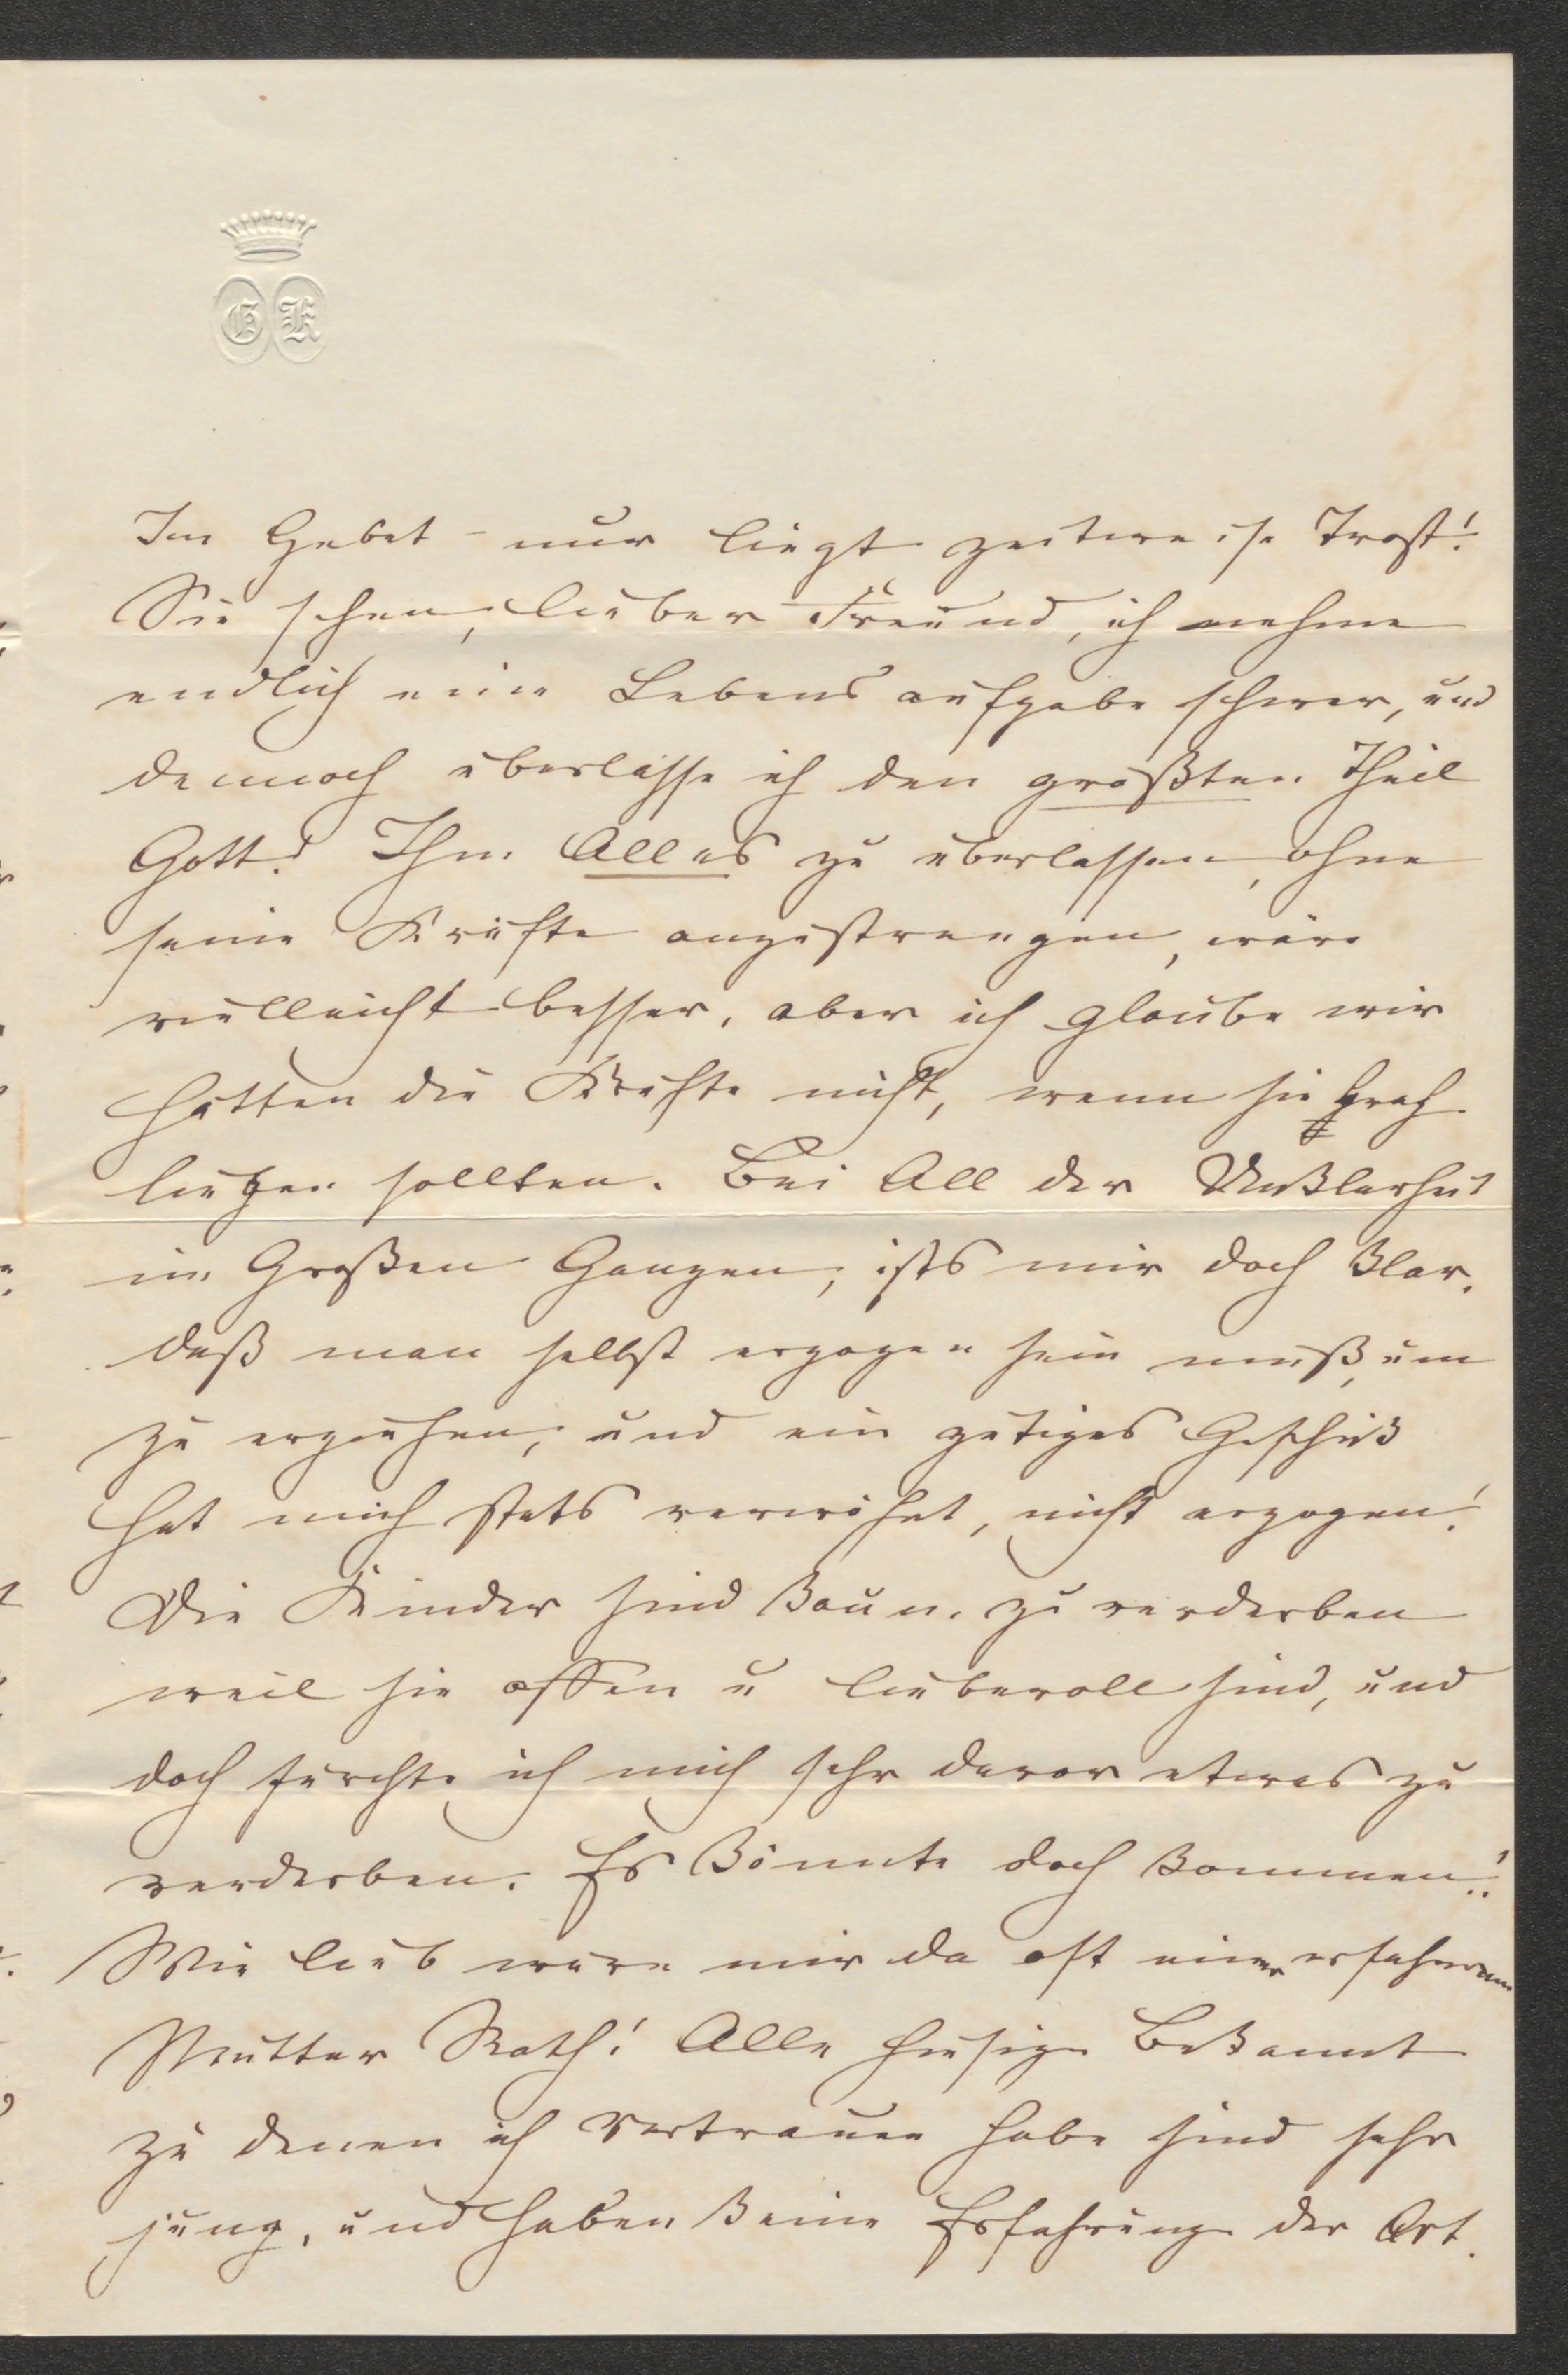 G K
Im Gebet - nur liegt zeitweise Trost!
Sie sehen, lieber Freund, ich nehme
endlich eine Lebensaufgabe schwer, und
dennoch überlasse ich den größten Theil
Gott! Ihm Alles zu überlassen, ohne
seine Kräfte anzustrengen, wäre
vielleicht besser, aber ich glaube wir
hätten die Kräfte nicht, wenn sie brach
liegen sollten. Bei All der Unklarheit
im Großen Ganzen, ists mir doch klar,
daß man selbst erzogen sein muß, um
zu erziehen, und ein gütiges Geschick
hat mich stets verwöhnt, nicht erzogen!
Die Kinder sind kaum zu verderben
weil sie offen u liebevoll sind, und
doch fürchte ich mich sehr davor etwas zu
verderben. Es könnte doch kommen!
Wie lieb wäre mir da oft einer erfahrenen
Mutter Rath! Alle hiesige Bekannt
zu denen ich Vertrauen habe sind sehr
jung, und haben keine Erfahrung der Art.